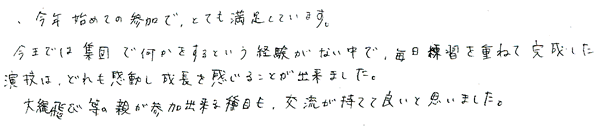 、今年始めての参加で、とても満足しています。
今までは集団で何かをするという経験がない中で、毎日練習を重ねて完成した
演技は、どれも感動し成長を感じることが出来ました。
大縄飛び等の親が参加出来る種目も、交流が持てて良いと思いました。